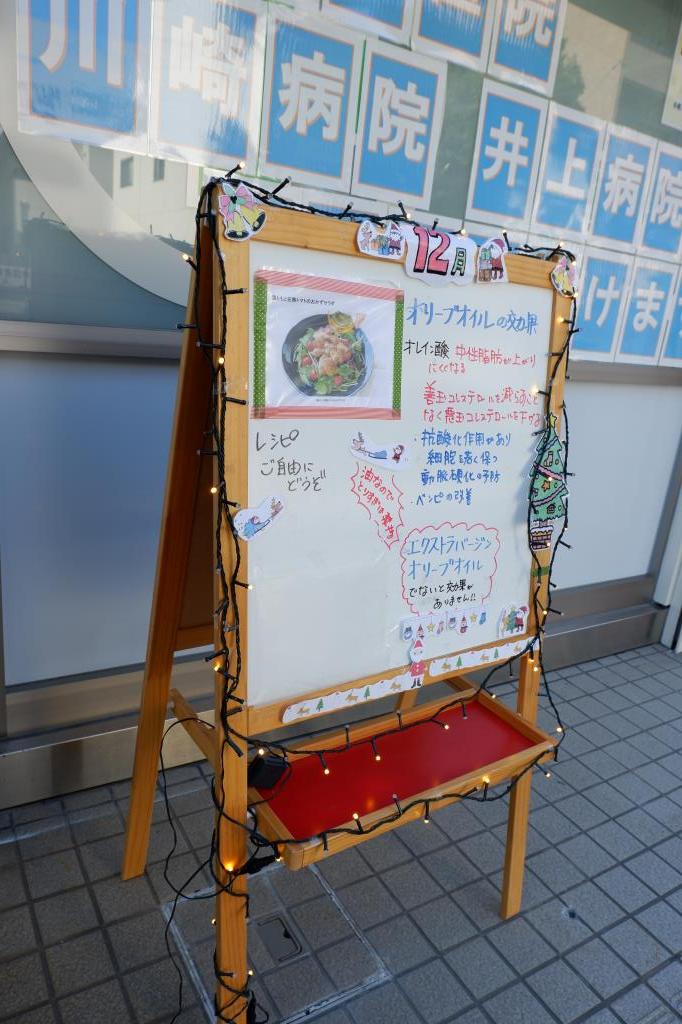 川崎病院
院
井上病院
けます
12月
オリーブオイルの効果
オレイン酸 中性脂肪が上がり
にくくなる
善玉コレステロールを減らすこと
なく悪玉コレステロールを下げる
・抗酸化作用があり
細胞を若く保つ
動脈硬化の予防
・ベンピの改善
レシピ
ご自由に
どうぞ
油なので
とりすぎは
エクストラバージン
オリーブオイル
でないと効果が
ありません!!